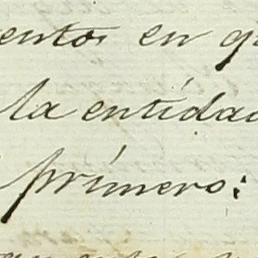 entos en q
la entidad
primero: